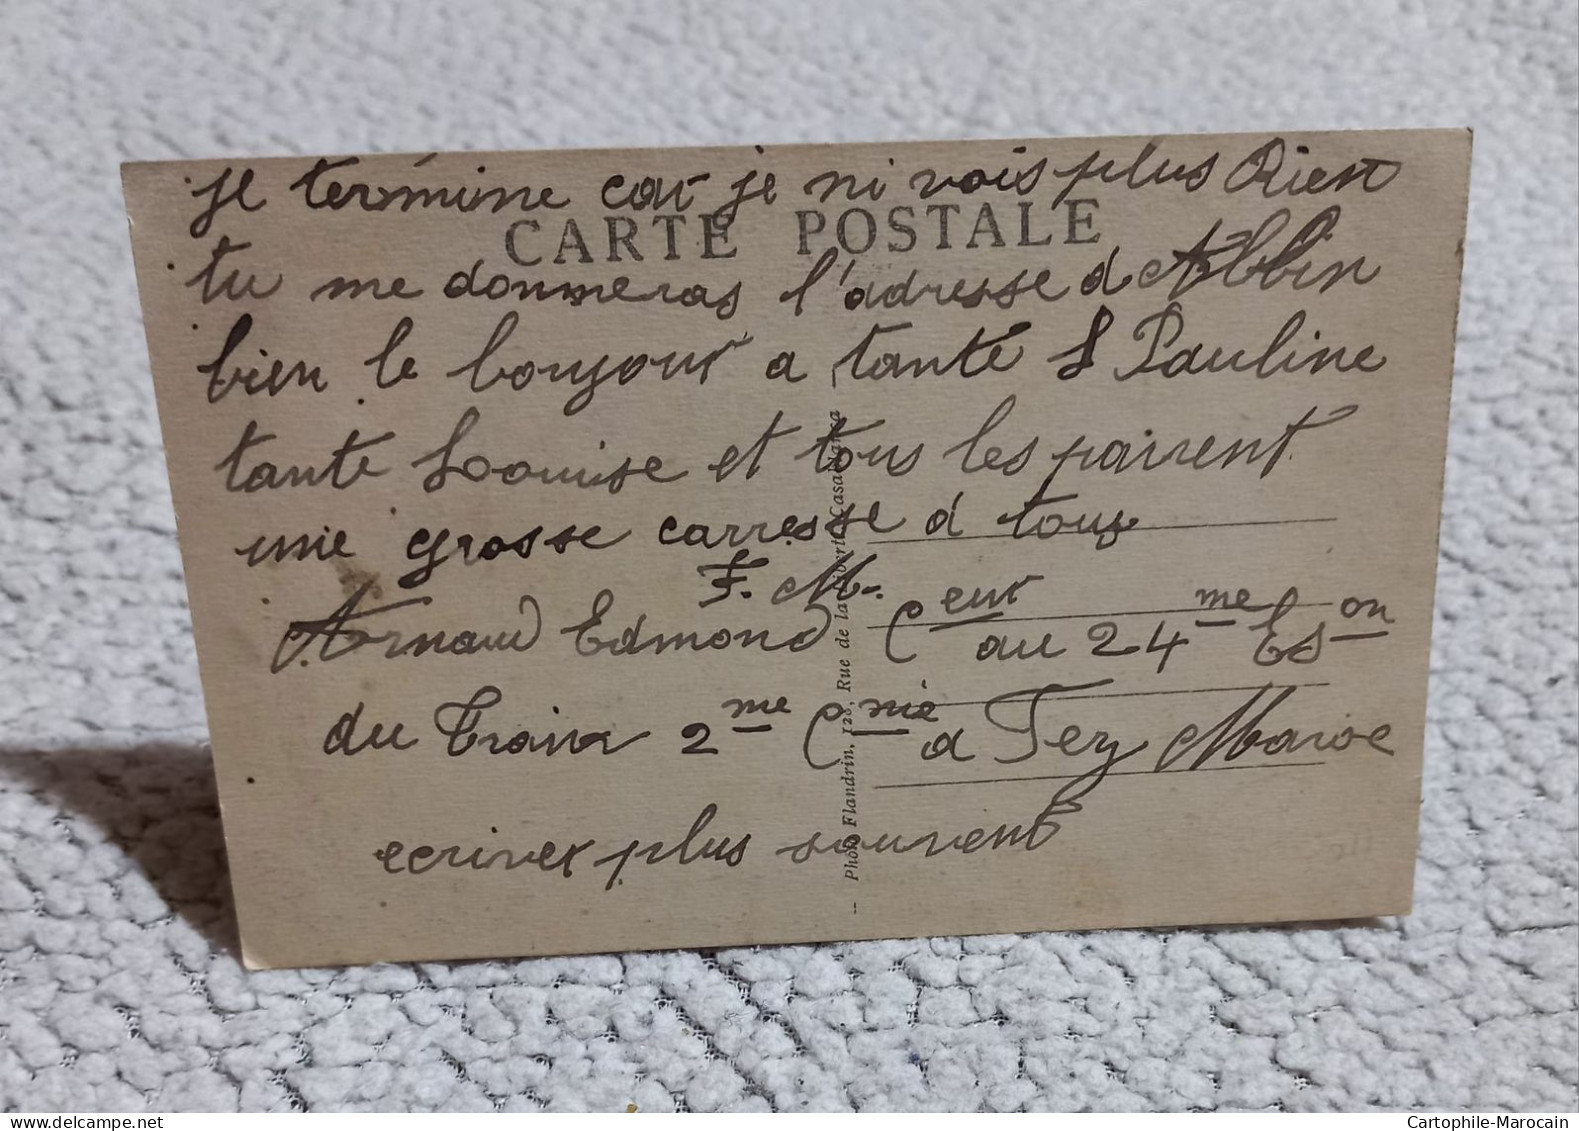 je termine car je ni vois plus Rien
CARTE POSTALE
tu me donneras l'adresse d Albin
bien le bonjour a tante Pauline
tante Louise et tous les parrent
une grosse carresse a tous
F. M.
Arnaud Edmond Ceur au 24me Eson
du Train 2me Cnie a Fez Maroc
ecriver plus souvent
– Photo Flandrin, 128, Rue de la Liberté, Casablanca
Cartophile-Marocain